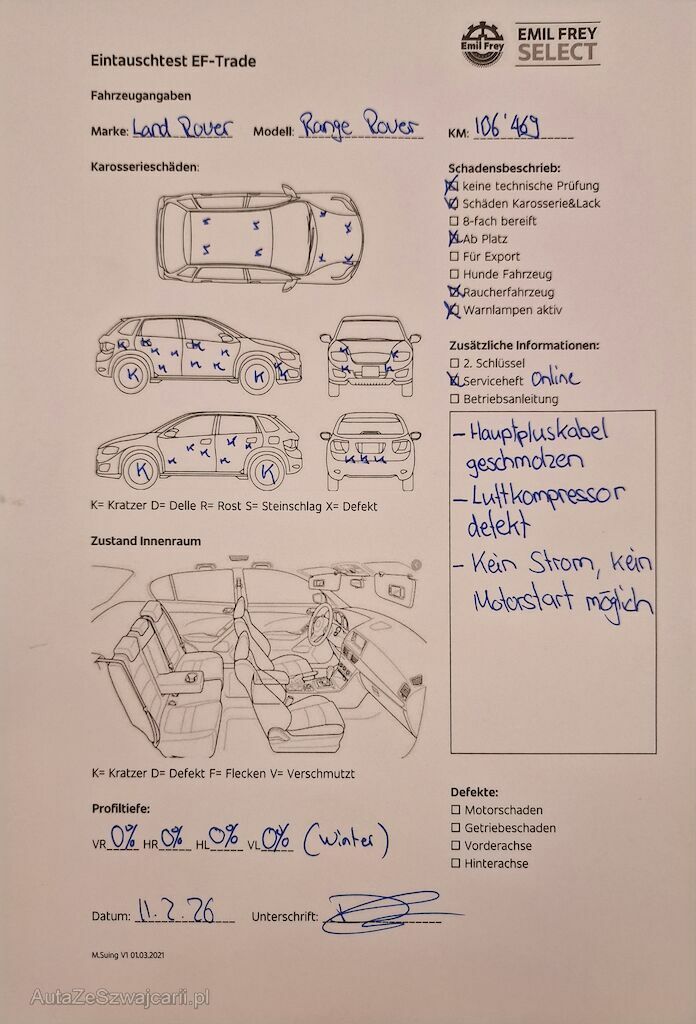 Emil Frey
EMIL FREY
SELECT
Eintauschtest EF-Trade
Fahrzeugangaben
Marke: Land Rover Modell: Range Rover KM: 106'469
Karosserieschäden:
Schadensbeschrieb:
keine technische Prüfung
Schäden Karosserie&Lack
8-fach bereift
Ab Platz
Für Export
Hunde Fahrzeug
Raucherfahrzeug
Warnlampen aktiv
Zusätzliche Informationen:
2. Schlüssel
Serviceheft Online
Betriebsanleitung
- Hauptpluskabel
geschmolzen
- Luftkompressor
defekt
- Kein Strom, kein
Motorstart möglich
K= Kratzer D= Delle R= Rost S= Steinschlag X= Defekt
Zustand Innenraum
K= Kratzer D= Defekt F= Flecken V= Verschmutzt
Profiltiefe:
VR 0% HR 0% HL 0% VL 0% (Winter)
Defekte:
Motorschaden
Getriebeschaden
Vorderachse
Hinterachse
Datum: 11.2.26 Unterschrift:
M.Suing V1 01.03.2021
AutaZeSzwajcarii.pl